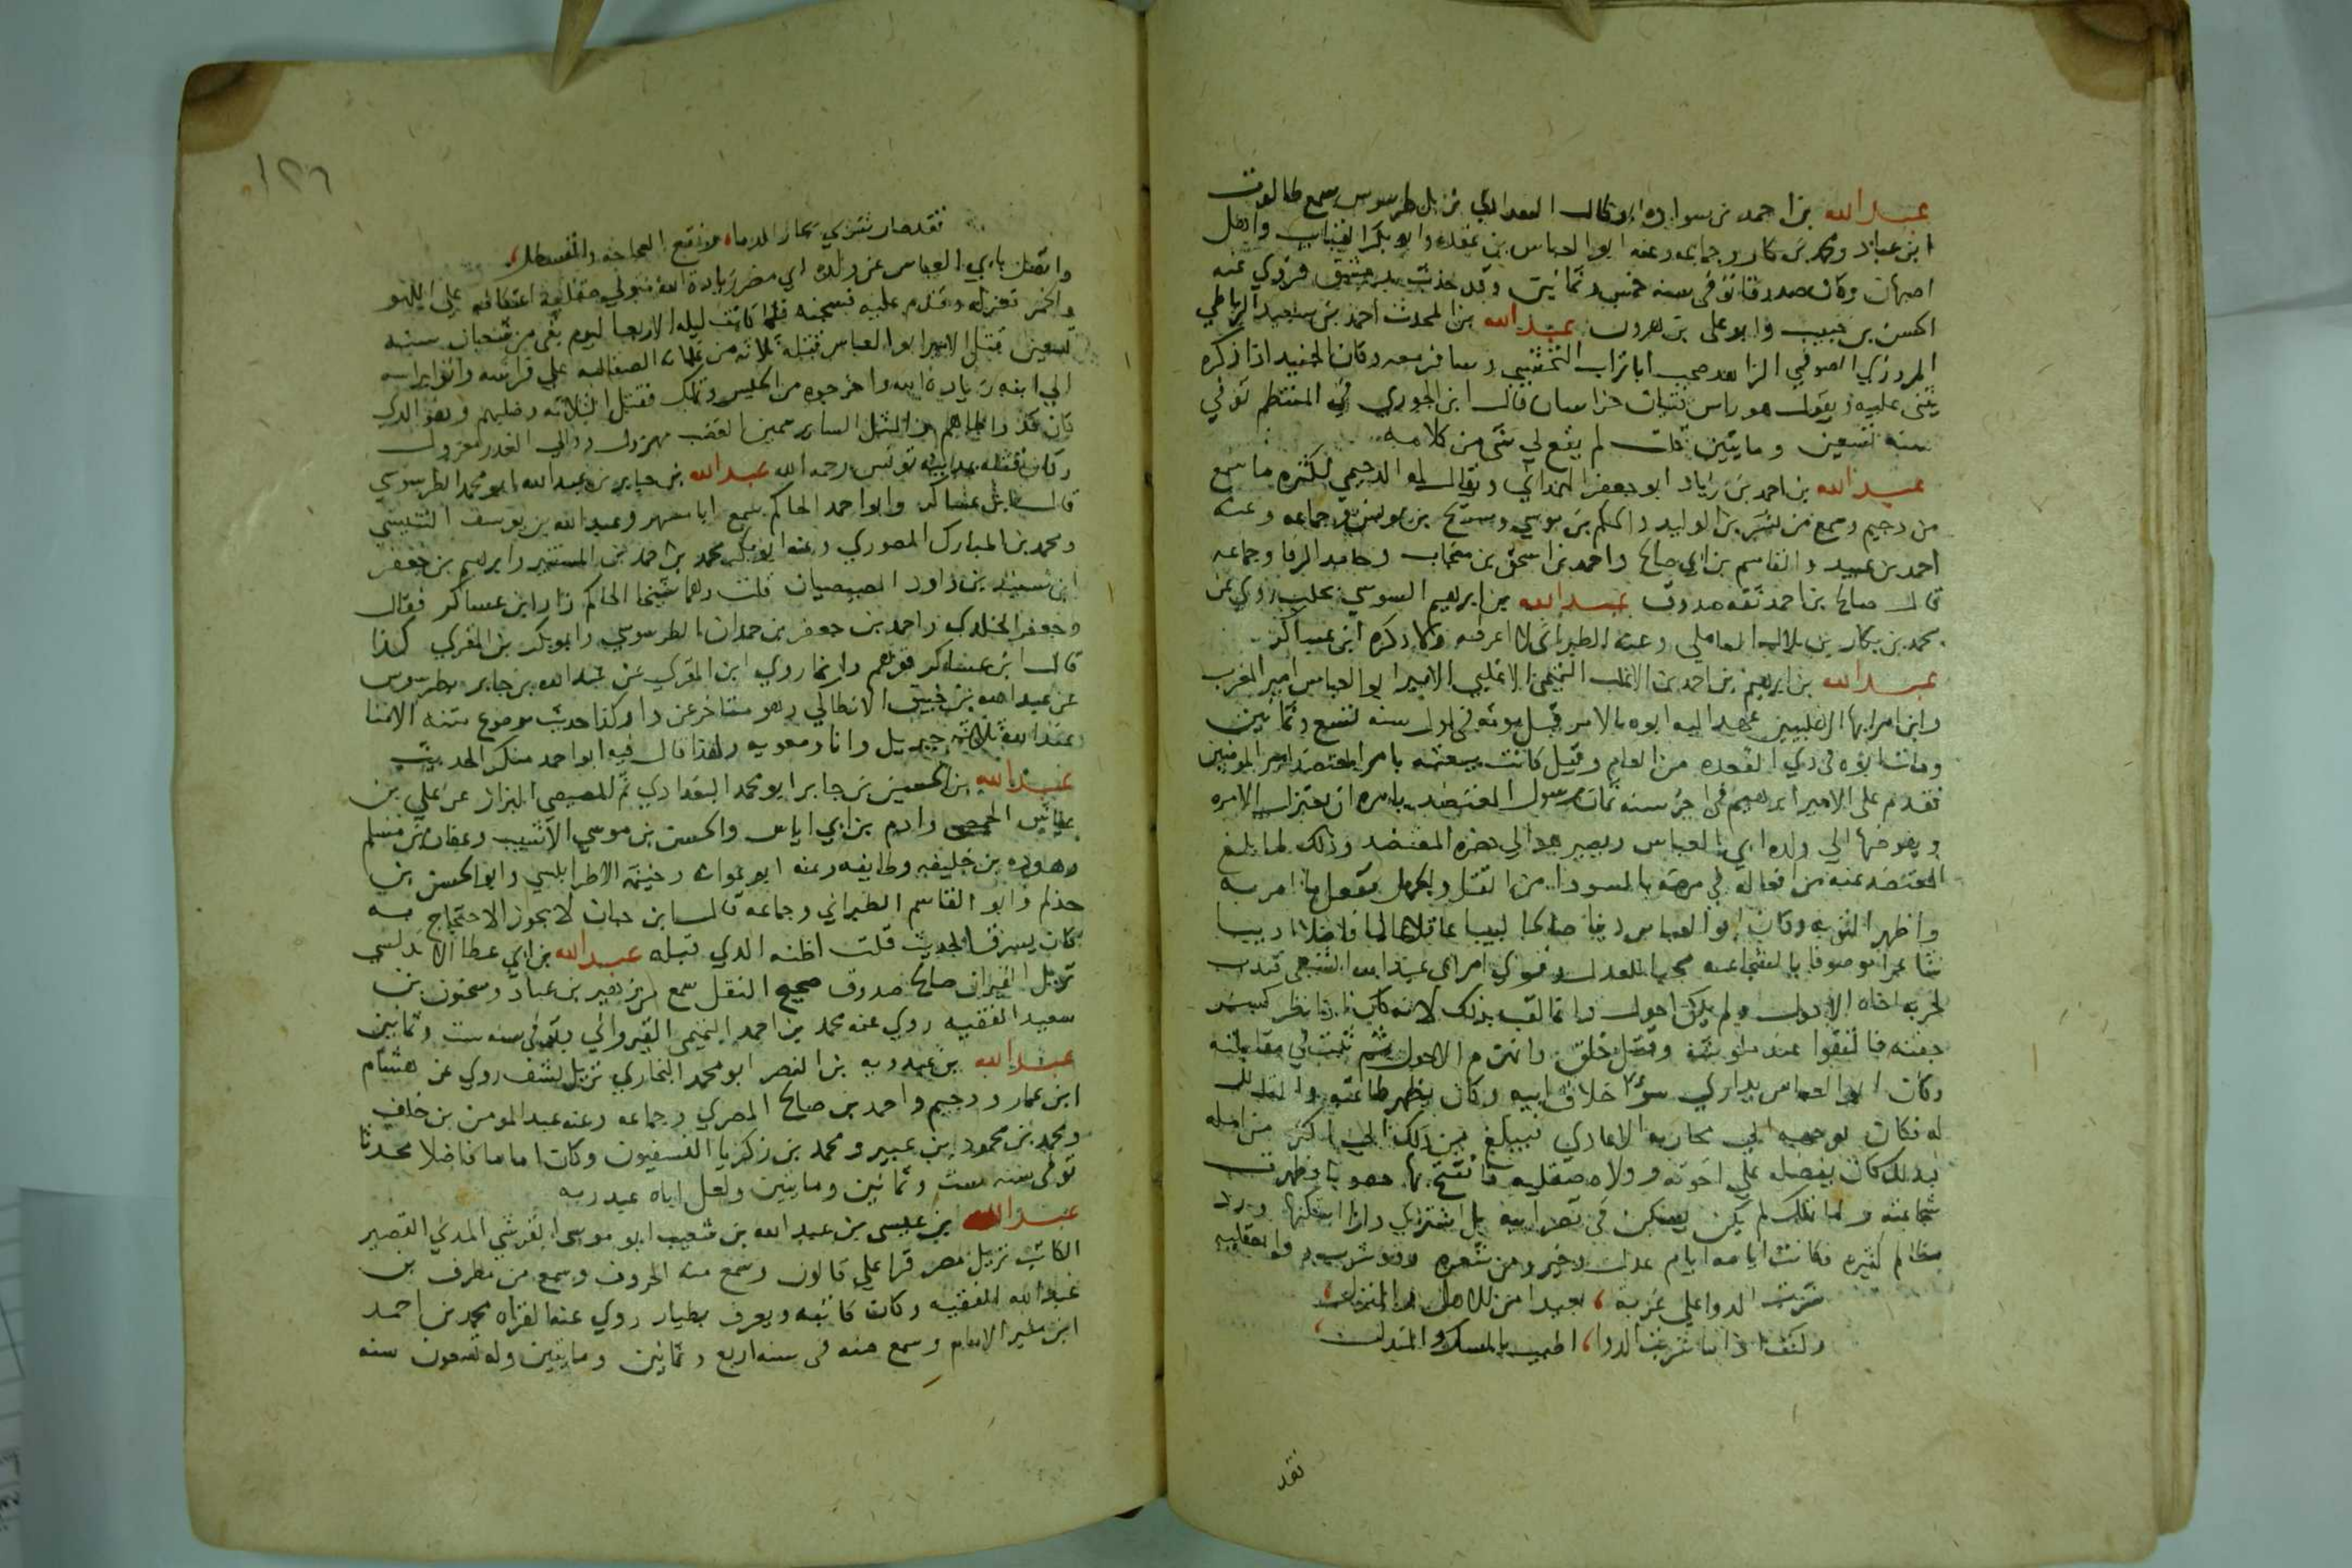 عبد الله بن احمد بن سواده ابو طالب البغدادي نزيل طرسوس سمع طالوت
ابن عباد ومحمد بن بكار وجماعه وعنه ابو العباس بن عقده وابو بكر القباب واهل
اصبهان وكان صدوقا توفي سنه خمس وثمانين وقد حدث بدمشق فروي عنه
الحسن بن حبيب وابو علي بن هرون عبد الله بن المحدث احمد بن سعيد الرباطي
المروزي الصوفي الزاهد صحب ابا تراب النخشبي وسافر معه وكان الجنيد اذا ذكره
يثني عليه ويقول هو راس فتيان خراسان قال ابن الجوزي في المنتظم توفي
سنه تسعين ومايتين قلت لم يقع لي شي من كلامه
عبد الله بن احمد بن زياد ابو جعفر الهمداني ويقال له الدحيمي لكثره ما سمع
من دحيم وسمع من بشر بن الوليد والحكم بن موسي وسريج بن يونس وجماعه وعنه
احمد بن عبيد والقاسم بن ابي صالح واحمد بن اسحق بن منجاب وحامد الرفا وجماعه
قال صالح بن احمد ثقه صدوق عبد الله بن ابرهيم السوسي بحلب روي عن
محمد بن بكار بن بلال العاملي وعنه الطبراني لا اعرفه ولا ذكره ابن عساكر
عبد الله بن ابرهيم بن احمد بن الاغلب التميمي الاغلبي الامير ابو العباس امير المغرب
وابن امرايها الاغلبيين عهد اليه ابوه بالامر قبل موته في اول سنه تسع وثمانين
ومات ابوه في ذي القعده من العام وقيل كانت بيعته بامر المعتضد امير المومنين
فقدم علي الامير ابرهيم في اخر سنه ثمان رسول المعتضد يامره ان يعتزل الامره
ويفوضها الي ولده ابي العباس ويصير هو الي حضره المعتضد وذلك لما بلغ
المعتضد عنه من افعاله في مرضه بالسودا من القتل والجهل ففعل ما امر به
واظهر التوبه وكان ابو العباس دينا صالحا لبيبا عاقلا عالما فاضلا اديبا
شاعرا موصوفا بالشجاعه محبا للعدل
لحربه اخاه الاحول ولم يكن احول وانما لقب بذلك لانه كان اذا نظر كسر
جفنه فالتقوا عند وقتل خلق وانهزم الاحول ثم ثبت في مقابلته
وكان ابو العباس يداري سوء اخلاق ابيه وكان يظهر طاعته والتذلل
له فكان يوجهه الي محاربه الاعادي فيبلغ من ذلك الي اكثر من امله
بذلك كان يفضله علي اخوته وولاه صقليه فافتتح بها حصونا وظهرت
شجاعته ولما تملك لم يكن يسكن في قصر ابيه بل اشتري دارا اسكنها ورد
مظالم كثيره فكانت ايامه ايام عدل وخير ومن شعره وقد شرب دوا بصقليه
شربت الدوا علي غربه بعيدا من الاهل والمنزل
وكنت اذا ما شربت الدوا اطيب بالمسك والمندل
فقد
١٢٦
فقد صار شربي بحار الدماء ونقع العجاجه والقسطل
واتصل بابي العباس عن ولده ابي مضر زياده الله متولي صقليه اعتكافه علي اللهو
والخمر فعزله وقدم عليه فسجنه فلما كانت ليله الاربعا ليوم بقي من شعبان سنه
تسعين قتل الامير ابو العباس قتله ثلاثه من غلمانه الصقالبه علي فراشه واتوا براسه
الي ابنه زياده الله واخرجوه من الحبس وتملك فقتل الثلاثه وصلبهم وهو الذي
كان قد واطاهم
وكان قتله بمدينه تونس رحمه الله عبد الله بن جابر بن عبد الله ابو محمد الطرسوسي
قال ابن عساكر وابو احمد الحاكم سمع ابا مسهر وعبد الله بن يوسف التنيسي
ومحمد بن المبارك الصوري وعنه ابو بكر محمد بن احمد بن المستنير وابرهيم بن جعفر
ابن سنيد بن داود المصيصيان قلت وهما شيخا الحاكم زاد ابن عساكر فقال
وجعفر الخلدي واحمد بن جعفر بن حمدان الطرسوسي وابو بكر بن المقري كذا
قال ابن عساكر فوهم وانما روي ابن المقري عن عبد الله بن جابر بطرسوس
عن عبد الله بن خبيق الانطاكي وهو متاخر عن ذا وكذا حديث موضوع متنه الامنا
عند الله ثلاثه جبريل وانا ومعويه ولهذا قال فيه ابو احمد منكر الحديث
عبد الله بن الحسين بن جابر ابو محمد البغدادي ثم المصيصي البزاز عن علي بن
عياش الحمصي وادم بن ابي اياس والحسن بن موسي الاشيب وعفان بن مسلم
وهوذه بن خليفه وطايفه وعنه ابو عوانه وخيثمه الاطرابلسي وابو الحسن بن
حذلم وابو القاسم الطبراني وجماعه قال ابن حبان لا يجوز الاحتجاج به
كان يسرق الحديث قلت اظنه الذي قبله عبد الله بن ابي عطا الاندلسي
نزيل القيروان صالح صدوق صحيح النقل سمع زهير بن عباد وسحنون بن
سعيد الفقيه روي عنه محمد بن احمد التميمي القيرواني توفي سنه ست وثمانين
عبد الله بن عبدويه بن النضر ابو محمد البخاري نزيل نسف روي عن هشام
ابن عمار ودحيم واحمد بن صالح المصري وجماعه وعنه عبد المومن بن خلف
ومحمد بن محمود بن عبير ومحمد بن زكريا النسفيون وكان اماما فاضلا محدثا
توفي سنه ست وثمانين ومايتين ولعل اباه عبد ربه
عبد الله ابن عيسي بن عبد الله بن شعيب ابو موسي القرشي المدني القصير
الكاتب نزيل مصر قرا علي قالون وسمع منه الحروف وسمع من مطرف بن
عبد الله الفقيه وكان كاتبه ويعرف بطيار روي عنه القراه محمد بن احمد
ابن منير الامام وسمع منه في سنه اربع وثمانين ومايتين وله تسعون سنه